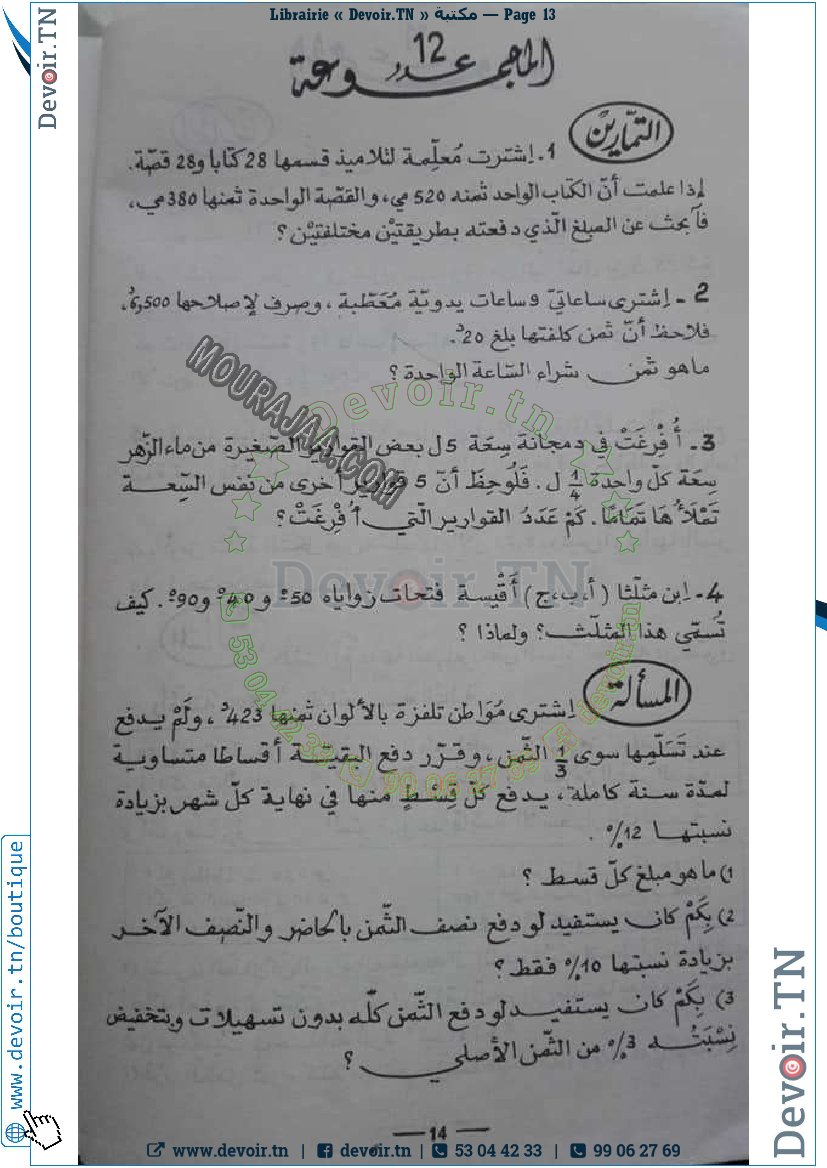 Librairie « Devoir.TN » مكتبة — Page 13
المجموعة عدد 12
التمارين
1. إشترت مُعلّمة لتلاميذ قسمها 28 كتابا و 28 قصّة.
إذا علمت أنّ الكتاب الواحد ثمنه 520 مي، والقصّة الواحدة ثمنها 380 مي،
فٱبحث عن المبلغ الّذي دفعته بطريقتيْن مختلفتيْن ؟
2 - إشترى ساعاتيّ 9 ساعات يدويّة مُعَطّبة، وصرف لإصلاحها 6,500د،
فلاحظ أنّ ثمن كلفتها بلغ 20د.
ما هو ثمن شراء السّاعة الواحدة ؟
3. أُفْرِغَتْ في دمجانة سِعَة 5 ل بعض القوارير الصّغيرة من ماء الزّهر
سِعَة كلّ واحدة 1/4 ل. فَلُوحِظَ أنّ 5 قوارير أخرى من نفس السِّعة
تَمْلَأُهَا تَمَامًا. كَمْ عَدَدُ القوارير الّتي أُفْرِغَتْ ؟
4 - اِبن مثلّثا (أ، ب، ج) أَقْيِسة فتحات زواياه 50° و 40° و 90°. كيف
تُسمّي هذا المثلّث ؟ ولماذا ؟
المسألة
إشترى مُوَاطن تلفزة بالألوان ثمنها 423د، ولَمْ يدفع
عند تَسَلّمِها سوى 1/3 الثّمن، وقرّر دفع البقيّة أقساطا متساوية
لمدّة سنة كاملة، يدفع كلّ قِسْطٍ منها في نهاية كلّ شهر بزيادة
نسبتها 12%.
1) ما هو مبلغ كلّ قسط ؟
2) بِكَمْ كان يستفيد لو دفع نصف الثّمن بالحاضر والنّصف الآخر
بزيادة نسبتها 10% فقط ؟
3) بِكَمْ كان يستفيد لو دفع الثّمن كلّه بدون تسهيلات وبتخفيض
نِسْبَتُه 3% من الثّمن الأصلي ؟
— 14 —
www.devoir.tn | devoir.tn | 53 04 42 33 | 99 06 27 69
Devoir.TN
www.devoir.tn/boutique
Devoir.TN
MOURAJAA.COM
Devoir.tn
Devoir.TN
53 04 42 33 99 06 27 69 devoir.tn